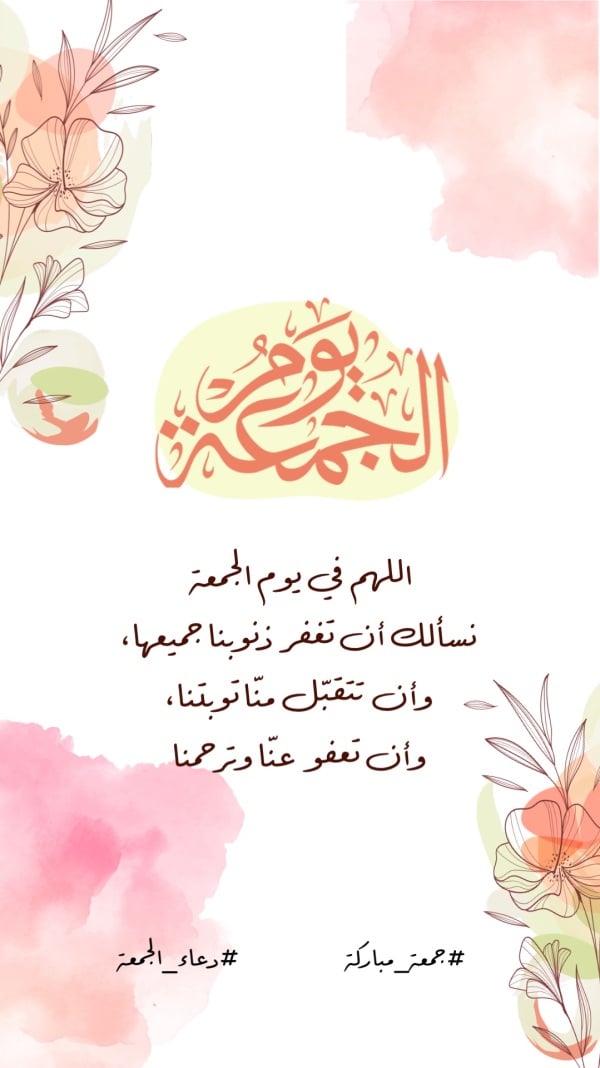 يَوْمُ
الجمعة
اللهم في يوم الجمعة
نسألك أن تغفر ذنوبنا جميعها،
وأن تتقبّل منّا توبتنا،
وأن تعفو عنّا وترحمنا
#جمعة_مباركة #دعاء_الجمعة